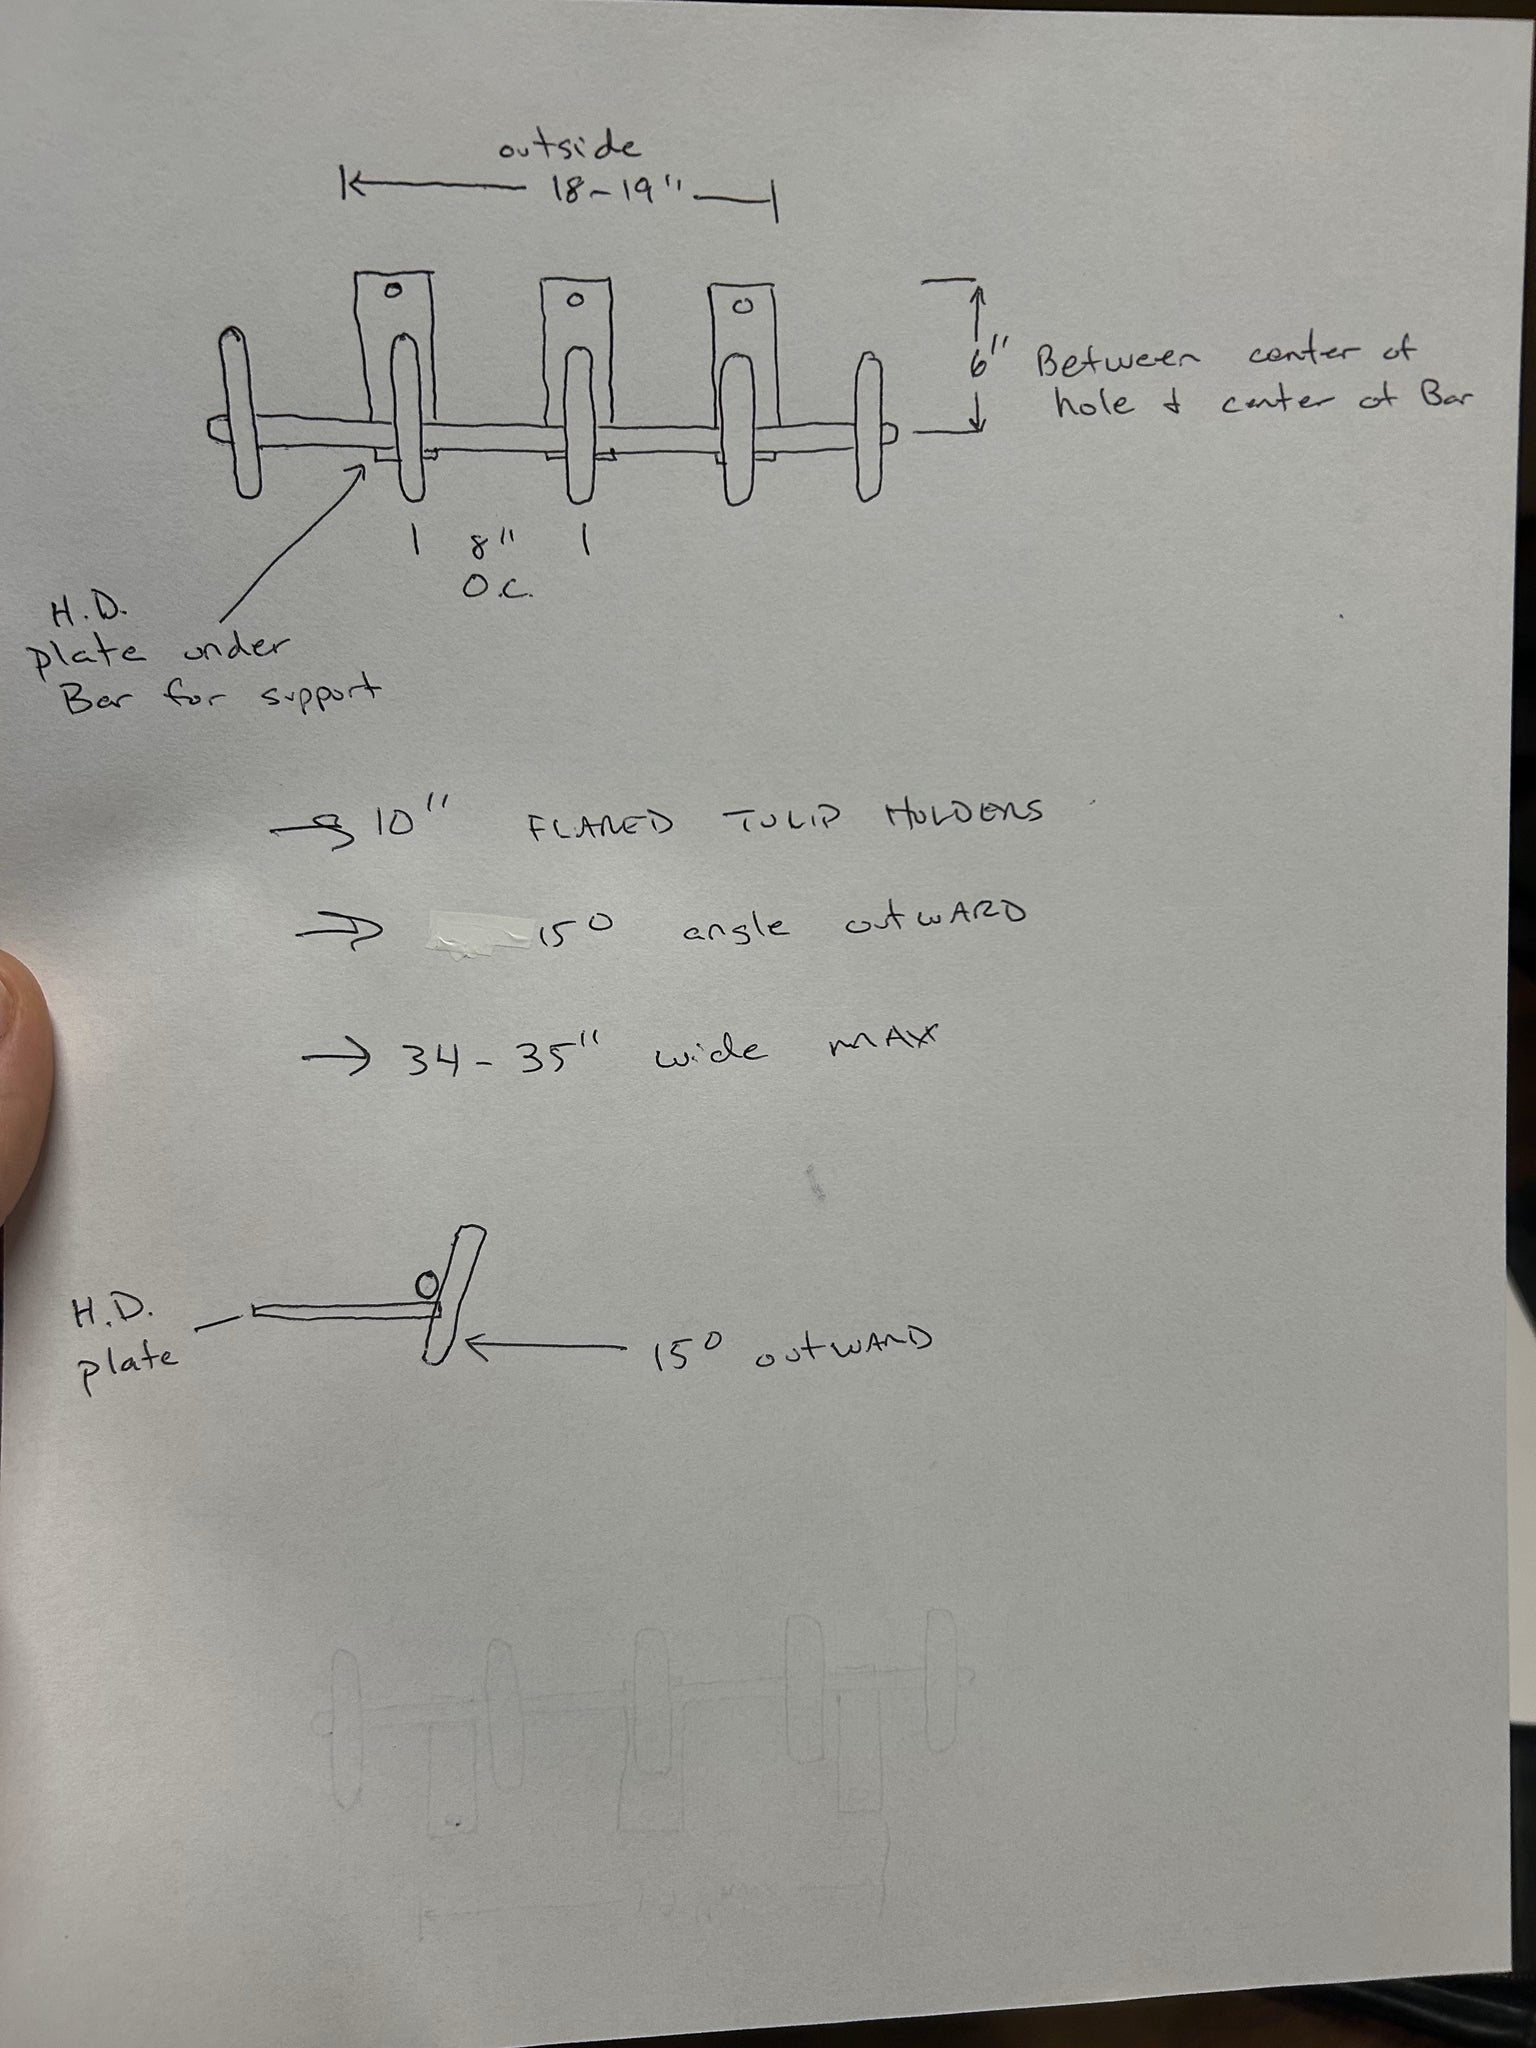 outside
18-19"
6" Between center of
hole & center of Bar
8"
O.C.
H.D.
plate under
Bar for support
10" FLARED TULIP HOLDERS
15° angle outWARD
34-35" wide MAX
H.D.
plate
15° outWARD